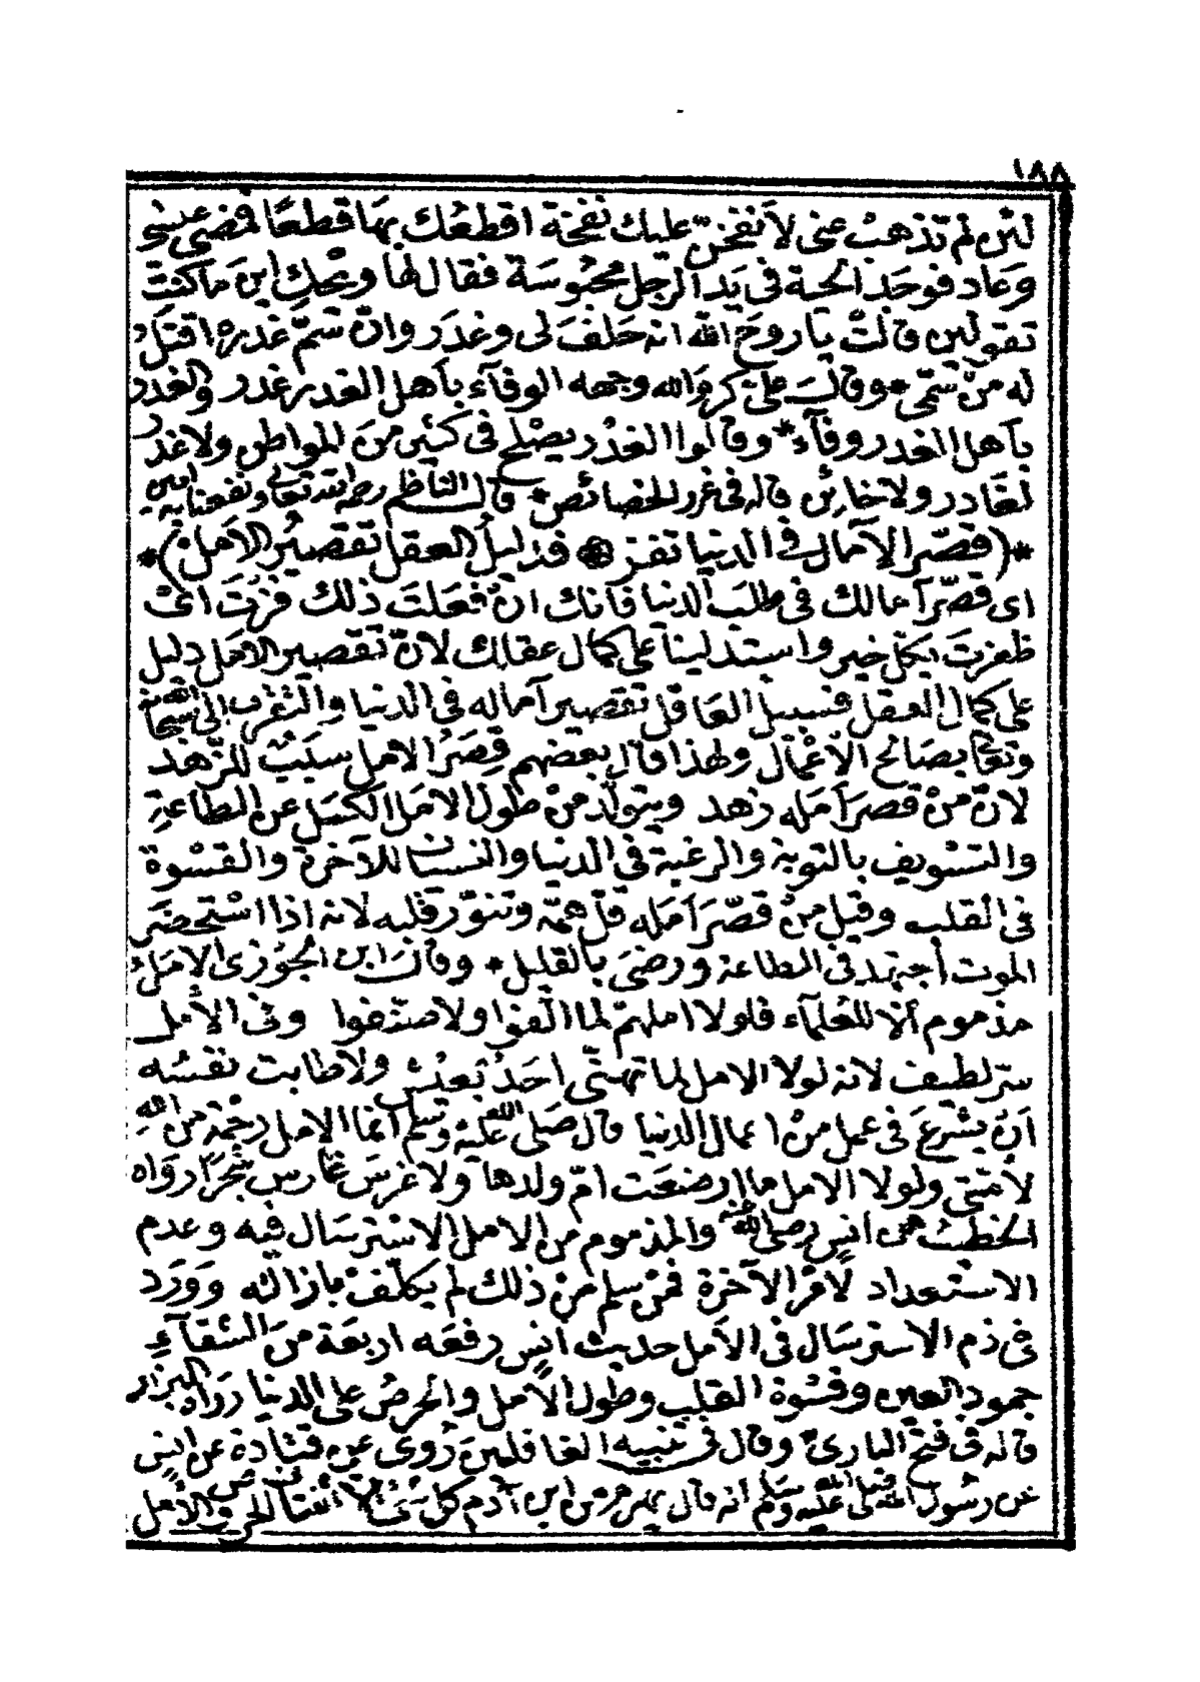 ١٨٨
لئن لم تذهب عنى لأنفخنّ عليك نفخة اقطعك بها قطعًا فمضى عيسى
وَعاد فوجَد الحية فى يَد الرجل محبُوسَة فقال لها ويحكِ اين مَا كنت
تقولين قالت يا روحَ الله انه حَلفَ لى وغدَر وانّ سمّ غدره اقتَلُ
له من سمّى * وقال علىّ كرم الله وجهه الوفآء بآهل الغدر غدر والغدر
بآهل الغدر وفآء * وقالوا الغدر يصْلح فى كثير منَ المواطن ولا غدر
لغَادر ولا خائن قاله فى غرر الخصائص * قال الناظم رحمه الله تعالى ونفعنا به امين
* ( قصّر الآمال فى الدنيا تفز فدليلُ العقل تقصيرُ الأمل ) *
اى قصّر آمالك فى طلبَ الدنيا فآنك انْ فعَلتَ ذلك فزتَ اىْ
ظفرتَ بكلّ خير واستدلينا على كمال عقلك لانّ تقصير الامَل دليل
على كمال العقل فسبيل العَاقل تقصير آماله فى الدنيا والتقرب الى الله سبحانه
وتعالى بصَالح الأعْمال ولهذا قال بعضهم قِصَرُ الامل سبَبٌ للزهد
لانّ منْ قصرَ أمَله زهد ويتولّد منْ طول الامَل الكسَل عن الطاعةِ
والتسْويف بالتوبة والرغبة فى الدنيا والنسيان للآخرة والقسْوة
فى القلب وقيل منْ قصّرَ أمَله قلّ همّه وتنوّر قلبه لانه اذا استحضَر
الموت أجتهد فى الطاعة ورضىَ بالقليل * وقالَ ابن الجوْزى الامَلُ
مذموم ألا للعُلمآء فلولا املهمْ لما الّفوا ولا صنّفوا وفى الأمل
سرّ لطيف لانه لولا الامل لما تهنّى احَدٌ بعيْش ولا طابت نفسُه
أنْ يشْرعَ فى عمل منْ اعمال الدنيا قال صَلى الله عليْه وسَلم انما الامل رحْمَة من اللهِ
لأمّتى ولولا الامل ما ارضعَت امّ ولدها ولا غرسَ غَارس شجَرًا روَاه
الخطيبُ عن أنس رضى الله عنه والمذموم من الامل الاسْترسَال فيه وعدم
الاستْعداد لأمْر الآخرة فمَنْ سلم منْ ذلك لم يكلّفْ بازالته ووَرَد
فى ذم الاسترسَال فى الأمَل حديث أنس رفعَه اربعَة منَ الشقآءِ
جمود العين وقسْوة القلب وطول الأمل والحرْصُ على الدنيا روَاه البزار
قاله فى فتح البارى وقال فى تنبيه الغافلينَ رُوى عن قتادة عن انس
عن رسُول الله صَلى الله عليْه وسَلم انه قال يهرم من ابن آدم كلّ شىْء الا اثنتان الحرص والأمل